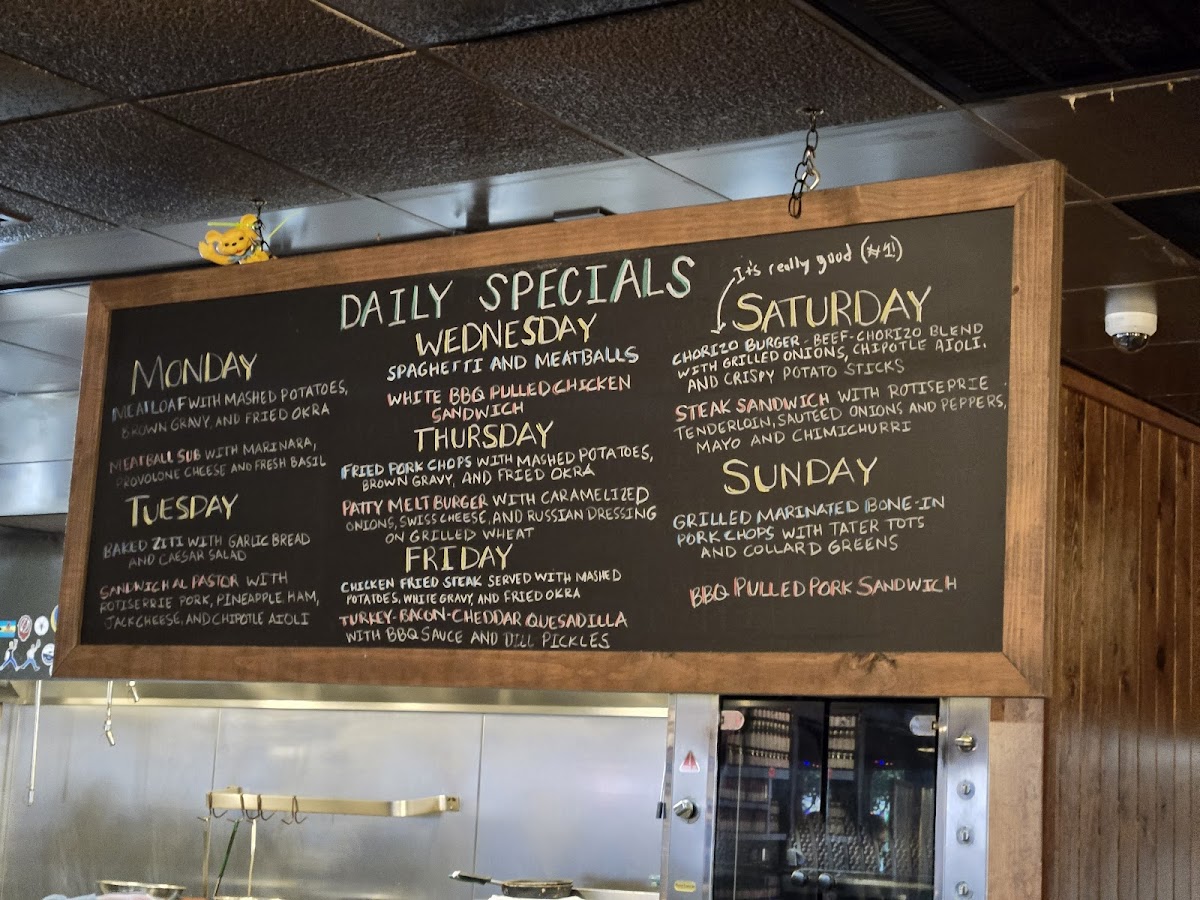 DAILY SPECIALS
MONDAY
MEATLOAF WITH MASHED POTATOES,
BROWN GRAVY, AND FRIED OKRA
MEATBALL SUB WITH MARINARA,
PROVOLONE CHEESE AND FRESH BASIL
TUESDAY
BAKED ZITI WITH GARLIC BREAD
AND CAESAR SALAD
SANDWICH AL PASTOR WITH
ROTISERRIE PORK, PINEAPPLE, HAM,
JACK CHEESE, AND CHIPOTLE AIOLI
WEDNESDAY
SPAGHETTI AND MEATBALLS
WHITE BBQ PULLED CHICKEN
SANDWICH
THURSDAY
FRIED PORK CHOPS WITH MASHED POTATOES,
BROWN GRAVY, AND FRIED OKRA
PATTY MELT BURGER WITH CARAMELIZED
ONIONS, SWISS CHEESE, AND RUSSIAN DRESSING
ON GRILLED WHEAT
FRIDAY
CHICKEN FRIED STEAK SERVED WITH MASHED
POTATOES, WHITE GRAVY, AND FRIED OKRA
TURKEY-BACON-CHEDDAR QUESADILLA
WITH BBQ SAUCE AND DILL PICKLES
It's really good (#1!)
SATURDAY
CHORIZO BURGER - BEEF-CHORIZO BLEND
WITH GRILLED ONIONS, CHIPOTLE AIOLI,
AND CRISPY POTATO STICKS
STEAK SANDWICH WITH ROTISEPRIE
TENDERLOIN, SAUTEED ONIONS AND PEPPERS,
MAYO AND CHIMICHURRI
SUNDAY
GRILLED MARINATED BONE-IN
PORK CHOPS WITH TATER TOTS
AND COLLARD GREENS
BBQ PULLED PORK SANDWICH